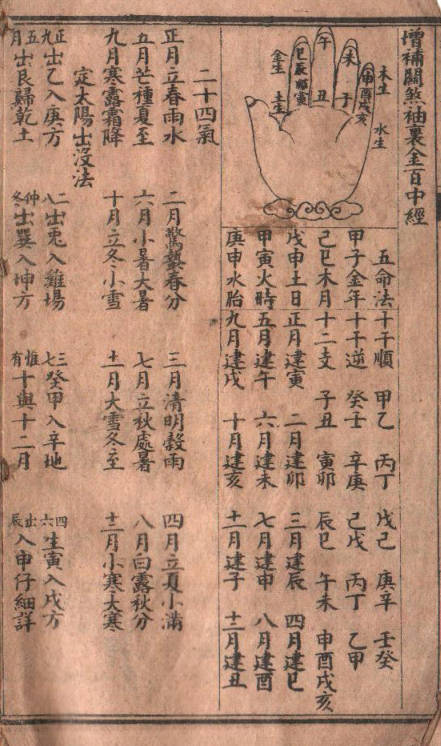 增補關煞袖裏金百中經
木生
水生
申酉戌亥
未
子
午
丑
巳辰卯寅
金生
五命法 十干順 甲乙 丙丁 戊己 庚辛 壬癸
甲子金年 十干逆 癸壬 辛庚 己戊 丙丁 乙甲
己巳木月 十二支 子丑 寅卯 辰巳 午未 申酉戌亥
戊申土日 正月建寅 二月建卯 三月建辰 四月建巳
甲寅火時 五月建午 六月建未 七月建申 八月建酉
庚申水胎 九月建戌 十月建亥 十一月建子 十二月建丑
二十四氣
正月立春雨水 二月驚蟄春分 三月清明穀雨 四月立夏小滿
五月芒種夏至 六月小暑大暑 七月立秋處暑 八月白露秋分
九月寒露霜降 十月立冬小雪 十一月大雪冬至 十二月小寒大寒
定太陽出沒法
正九出乙入庚方 二八出兎入雞場 三七癸甲入辛地 四六生寅入戌方
五月出艮歸乾土 仲冬出巽入坤方 惟有十與十二月 出辰入申仔細詳